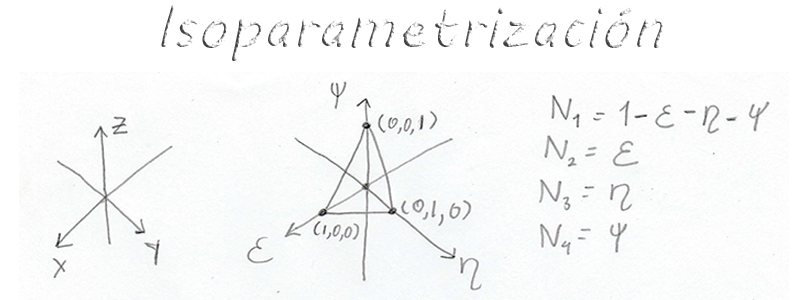 Isoparametrización
Z
X
Y
Ψ
(0,0,1)
(0,1,0)
(1,0,0)
ε
η
N₁ = 1 - ε - η - Ψ
N₂ = ε
N₃ = η
N₄ = Ψ